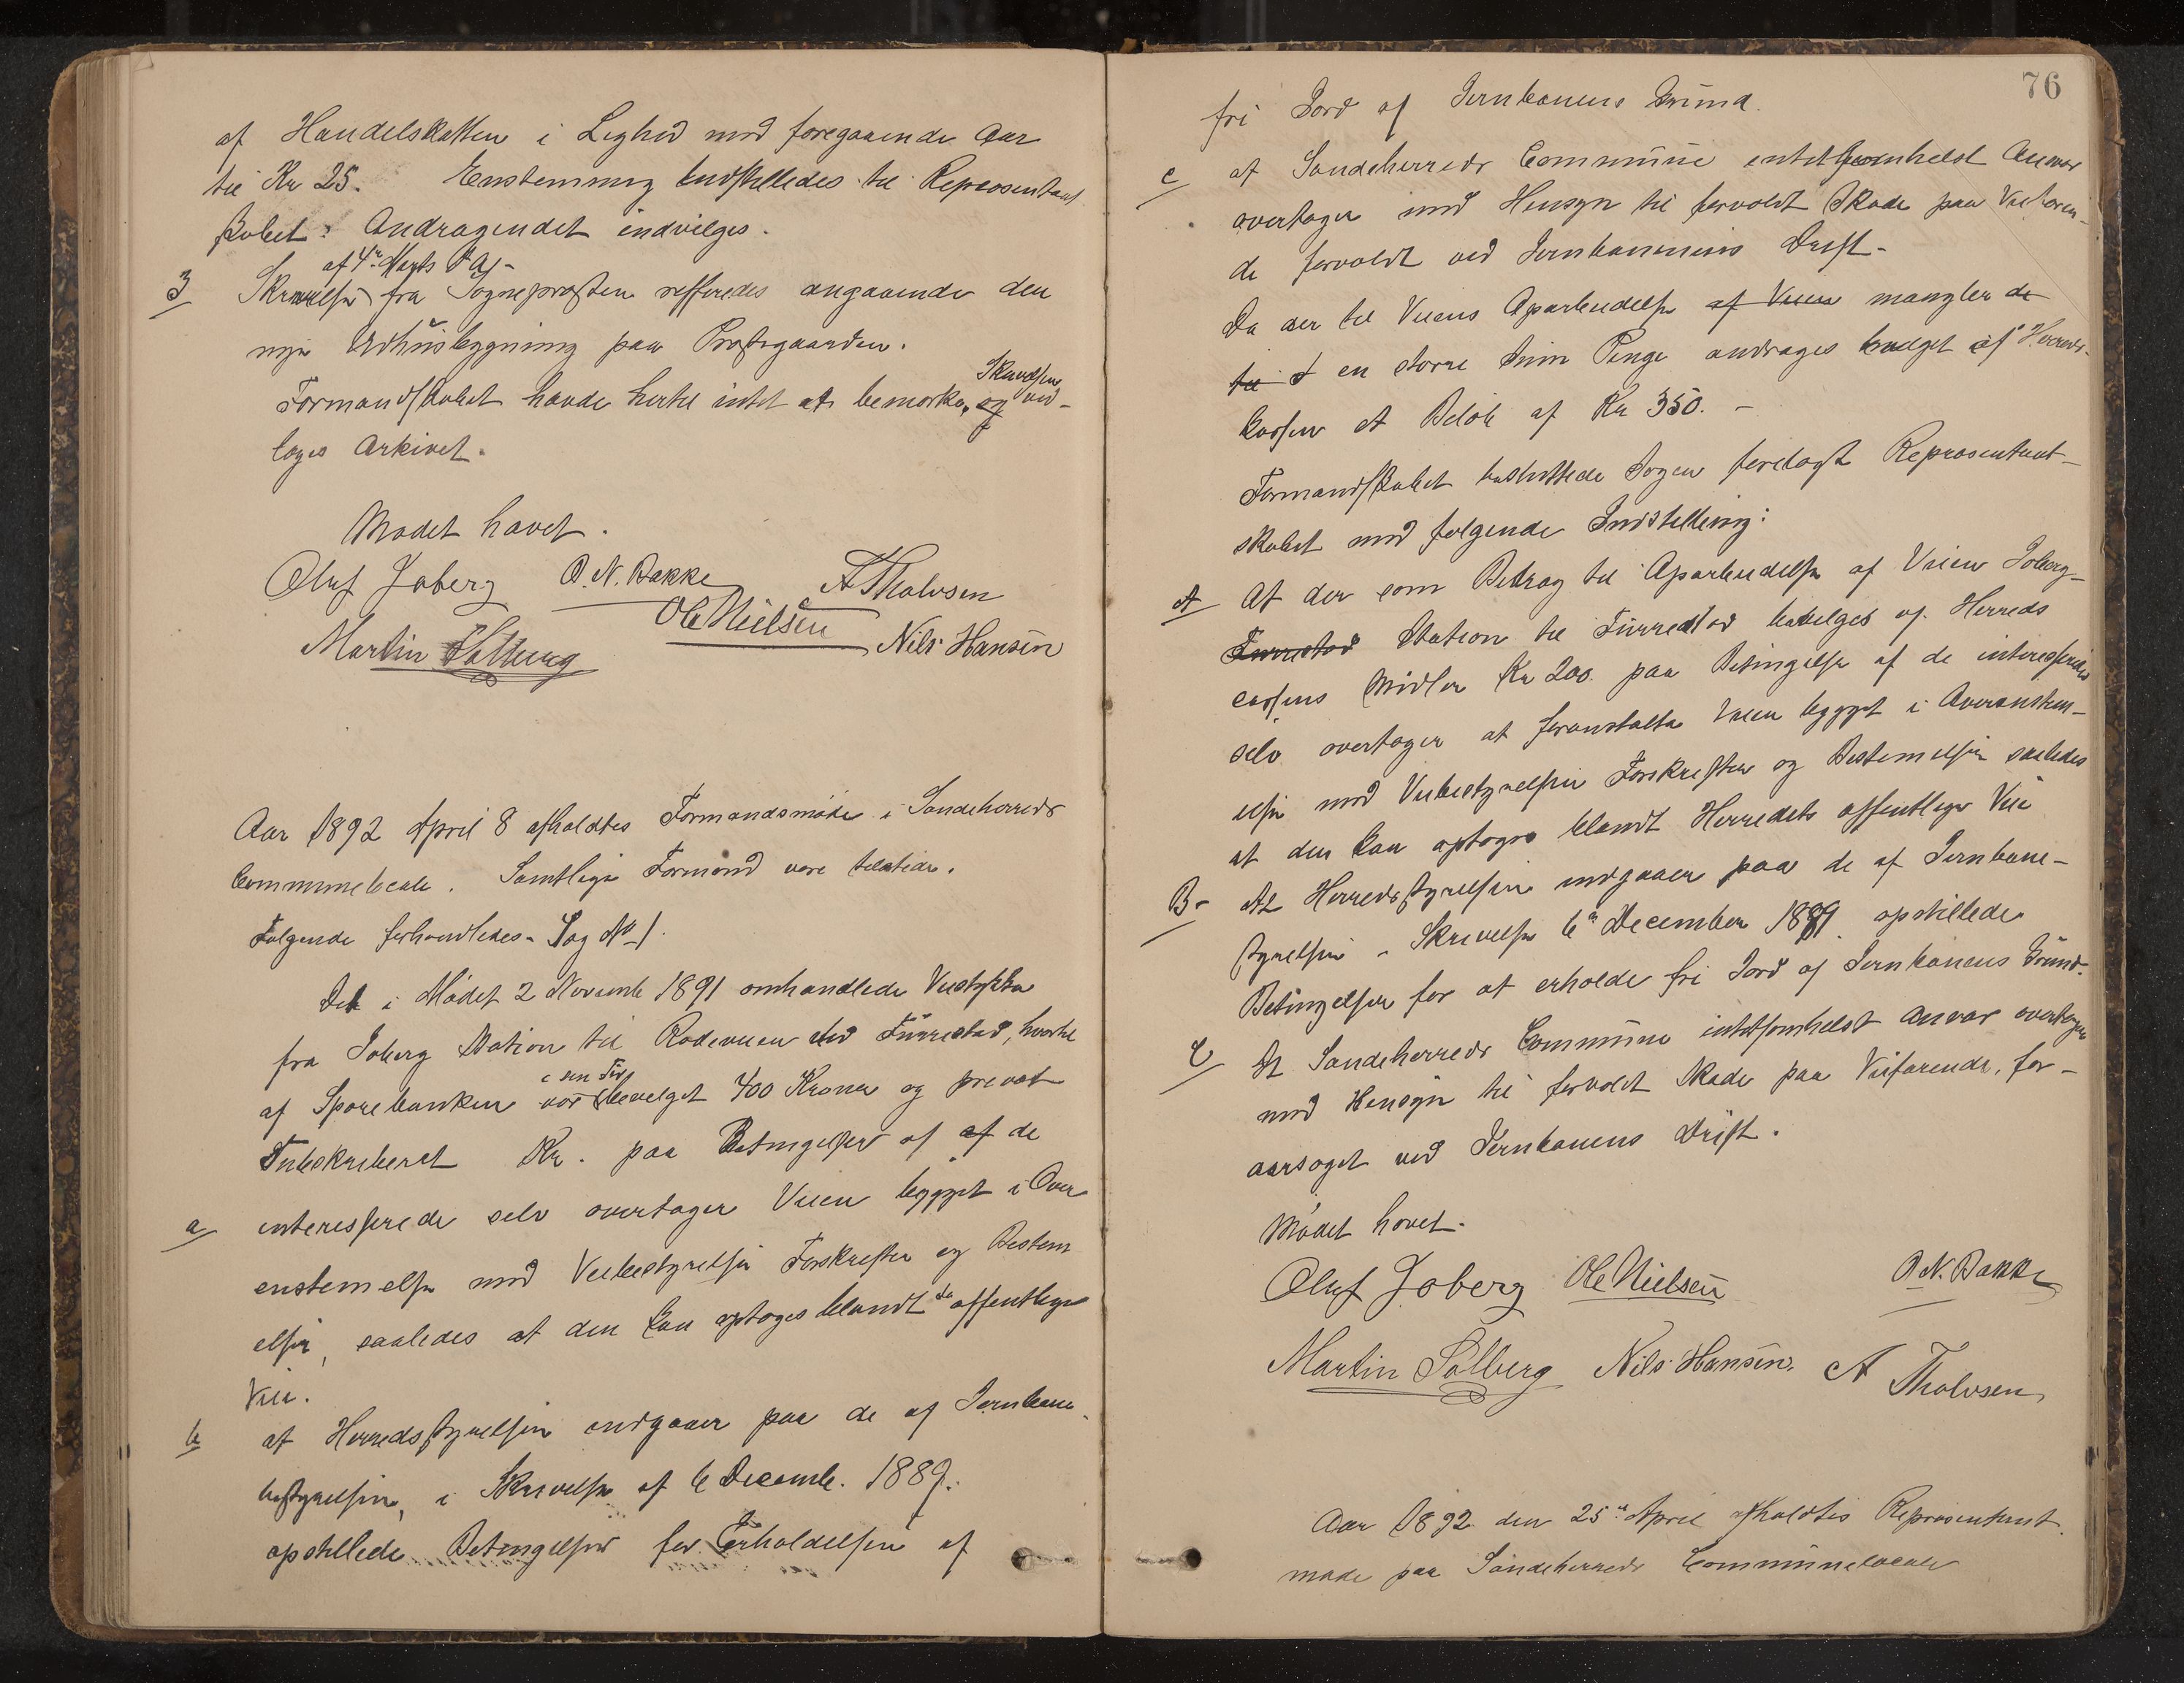 af Handelskatten i Lighed med foregaaende Aar
til Kr 25. Enstemmig Indstilledes til Repræsentant
skabet: Andragendet indvilges.
af 4de Marts d A -
3 Skrivelse fra Sognepræsten refferedes angaaende den
nye Udhusbygning paa Præstegaarden.
Skrivelsen
Formandskabet havde hertil intet at bemærke, og ved-
lages Arkivet.
Mødet hævet.
Oluf Joberg O. N. Bakke A Tholvsen
Ole Nielsen
Martin Solberg Nils Hansen
Aar 1892 April 8 afholdtes Formandsmøde i Sandeherreds
Communelocale. Samtlige Formænd vare tilstede.
Følgende forhandledes - Sag No 1.
Det i Mødet 2 Novemb 1891 omhandlede Veistykke
fra Joberg Station til Rodeveien ved Furrestad, hvortil
i sin Tid
af Sparebanken var bevilget 400 Kroner og privat
Subskriberet Kr. paa Betingelse af at de
a interesserede selv overtager Veien bygget i Over
enstemmelse med Veibestyrelsen Forskrifter og Bestem
elser, saaledes at den kan optages blandt de offentlige
Veie.
b at Herredsstyrelsen indgaaer paa de af Jernbane-
bestyrelsen, i Skrivelse af 6 Decemb. 1889.
opstillede Betingelser for Erholdelsen af
76
fri Jord af Jernbanens Grund.
c at Sandeherreds Commune intetsomhelst Ansvar
overtager med Hensyn til forvoldt Skade paa Veifaren-
de forvoldt ved Jernbanens Drift -
Da der til Veiens Oparbeidelse af Veien mangler de
til d en større Sum Penge andrages bevilget af Herreds-
kassen et Beløb af Kr 350. -
Formandskabet besluttede Sagen forelagt Repræsentant-
skabet med følgende Indstilling:
A At der som Bidrag til Oparbeidelse af Veien Joberg-
Furrestad Station til Furrestad bevilges af Herreds
cassens Midler Kr 200. paa Betingelse af de interesserede
selv overtager at foranstalte Veien bygget i Overenstem-
else med Veibestyrelsen Forskrifter og Bestemmelser saaledes
at den kan optages blandt Herredets offentlige Veie
B - At Herredsstyrelsen indgaaer paa de af Jernbane-
styrelsen - Skrivelse 6te December 1889 opstillede
Betingelser for at erholde fri Jord af Jernbanens Grund.
C At Sandeherreds Commune intetsomhelst Ansvar overtager
med Hensyn til forvoldt Skade paa Veifarende, for-
aarsaget ved Jernbanens Drift.
Mødet hævet.
Oluf Joberg Ole Nielsen O. N. Bakke
Martin Solberg Nils Hansen. A Tholvsen
Aar 1892 den 25de April afholdtes Repræsentant
møde paa Sandeherreds Communelocale